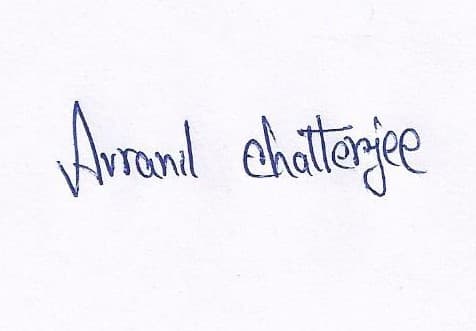 Avranil chatterjee